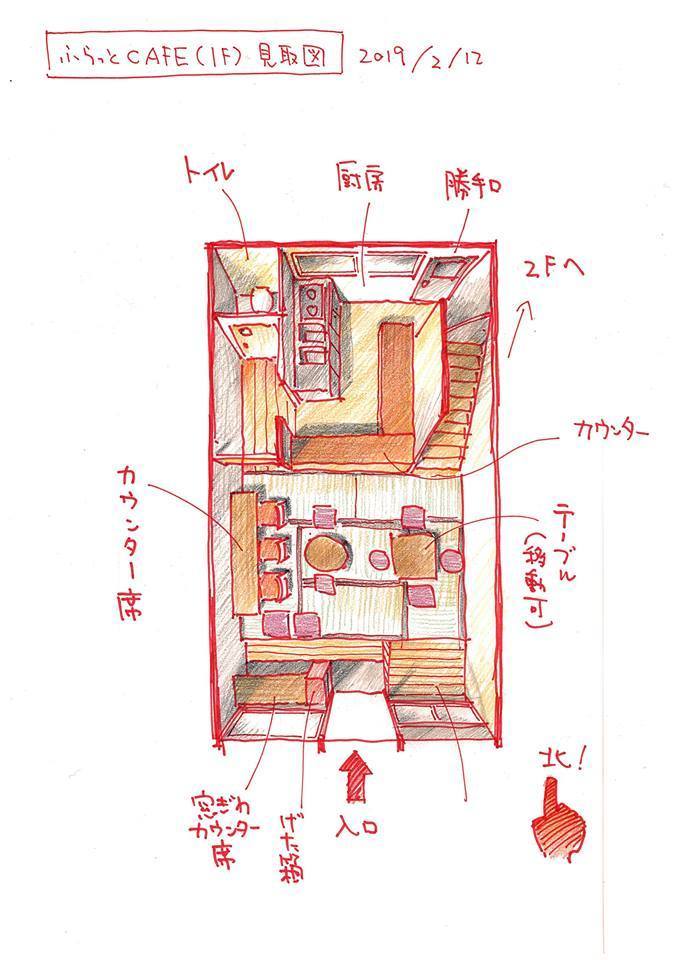 ふらっとCAFE(1F) 見取図 2019/2/12
トイレ
厨房
勝手口
2Fへ
カウンター
カウンター席
テーブル
(移動可)
窓ぎわ
カウンター
席
げた箱
入口
北!